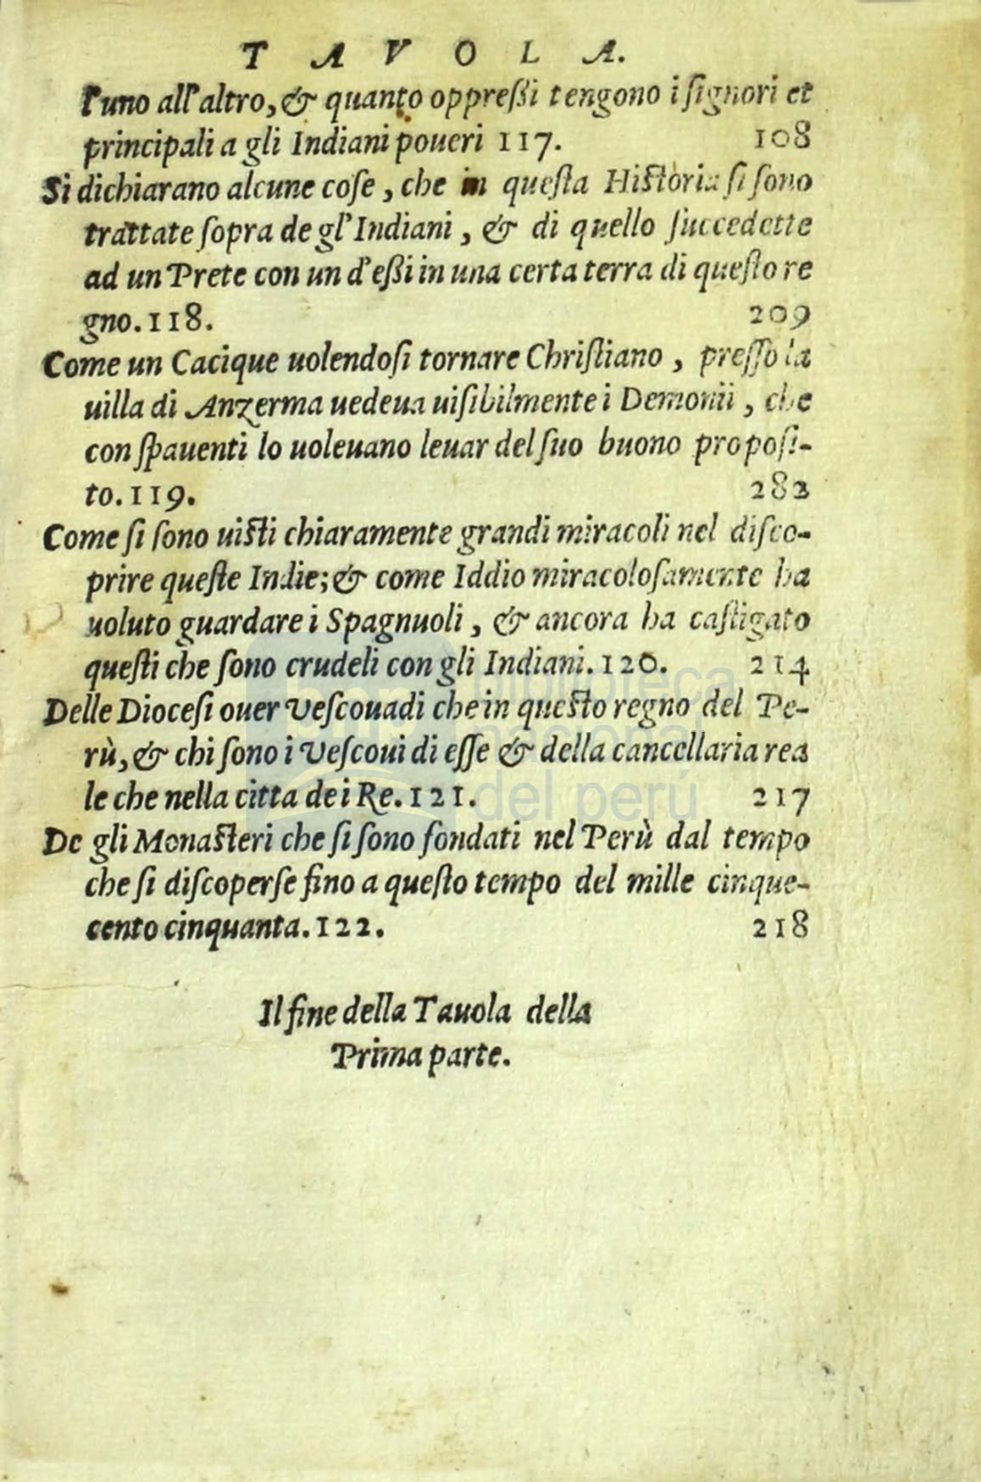 TAVOLA.
l'uno all'altro, & quanto oppreſſi tengono i ſignori et
principali a gli Indiani poueri 117. 108
Si dichiarano alcune coſe, che in queſta Hiſtoria ſi ſono
trattate ſopra de gl'Indiani, & di quello ſuccedette
ad un Prete con un d'eſſi in una certa terra di queſto re
gno. 118. 209
Come un Cacique uolendoſi tornare Chriſtiano, preſſo la
uilla di Anzerma uedeua uiſibilmente i Demonii, che
con ſpauenti lo uoleuano leuar del ſuo buono propoſi-
to. 119. 282
Come ſi ſono uiſti chiaramente grandi miracoli nel diſco-
prire queſte Indie; & come Iddio miracoloſamente ha
uoluto guardare i Spagnuoli, & ancora ha caſtigato
queſti che ſono crudeli con gli Indiani. 120. 214
Delle Dioceſi ouer Veſcouadi che in queſto regno del Pe-
rù, & chi ſono i Veſcoui di eſſe & della cancellaria rea
le che nella citta dei Re. 121. 217
De gli Monaſteri che ſi ſono fondati nel Perù dal tempo
che ſi diſcoperſe fino a queſto tempo del mille cinque-
cento cinquanta. 122. 218
Il fine della Tauola della
Prima parte.
biblioteca
nacional
del perú